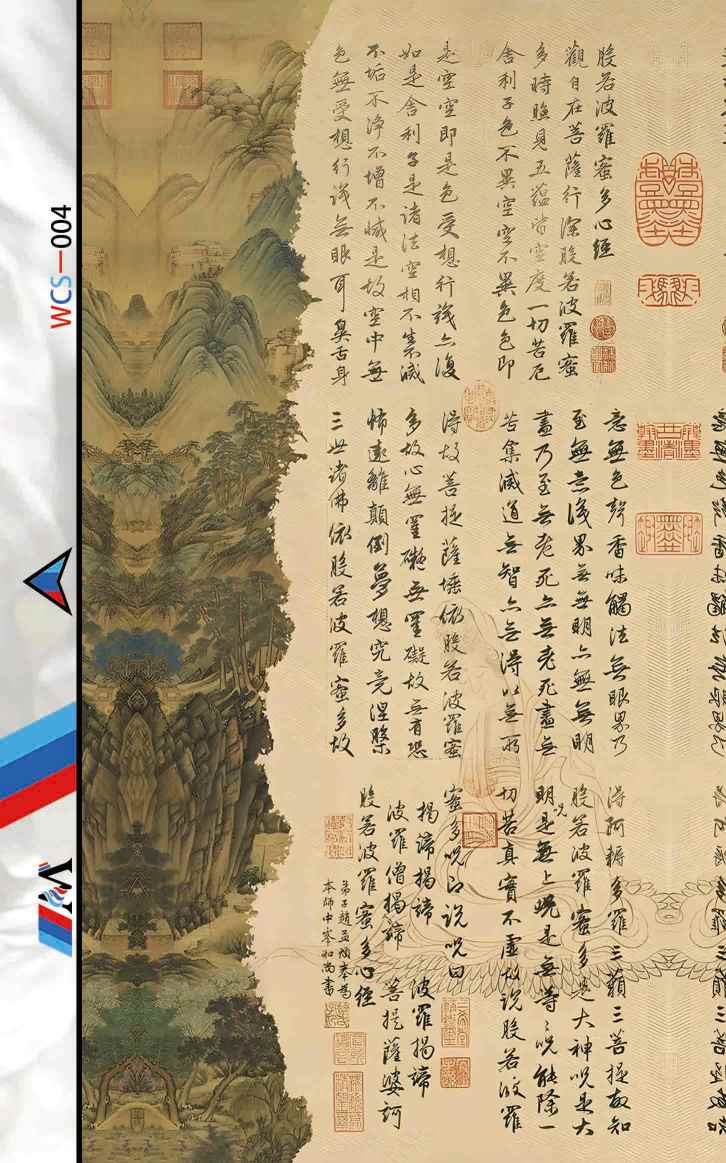 WCS-004
般若波羅蜜多心經
觀自在菩薩行深般若波羅蜜
多時照見五蘊皆空度一切苦厄
舍利子色不異空空不異色色即
是空空即是色受想行識亦復
如是舍利子是諸法空相不生不滅
不垢不淨不增不減是故空中無
色無受想行識無眼耳鼻舌身
意無色聲香味觸法無眼界乃
至無意識界無無明亦無無明
盡乃至無老死亦無老死盡無
苦集滅道無智亦無得以無所
得故菩提薩埵依般若波羅蜜
多故心無罣礙無罣礙故無有恐
怖遠離顛倒夢想究竟涅槃
三世諸佛依般若波羅蜜多故
得阿耨多羅三藐三菩提故知
般若波羅蜜多是大神咒是大
明咒是無上咒是無等等咒能除一
切苦真實不虛故說般若波羅
蜜多咒即說咒曰
揭諦揭諦 波羅揭諦
波羅僧揭諦 菩提薩婆訶
般若波羅蜜多心經
弟子趙孟頫奉為
本師中峯和尚書